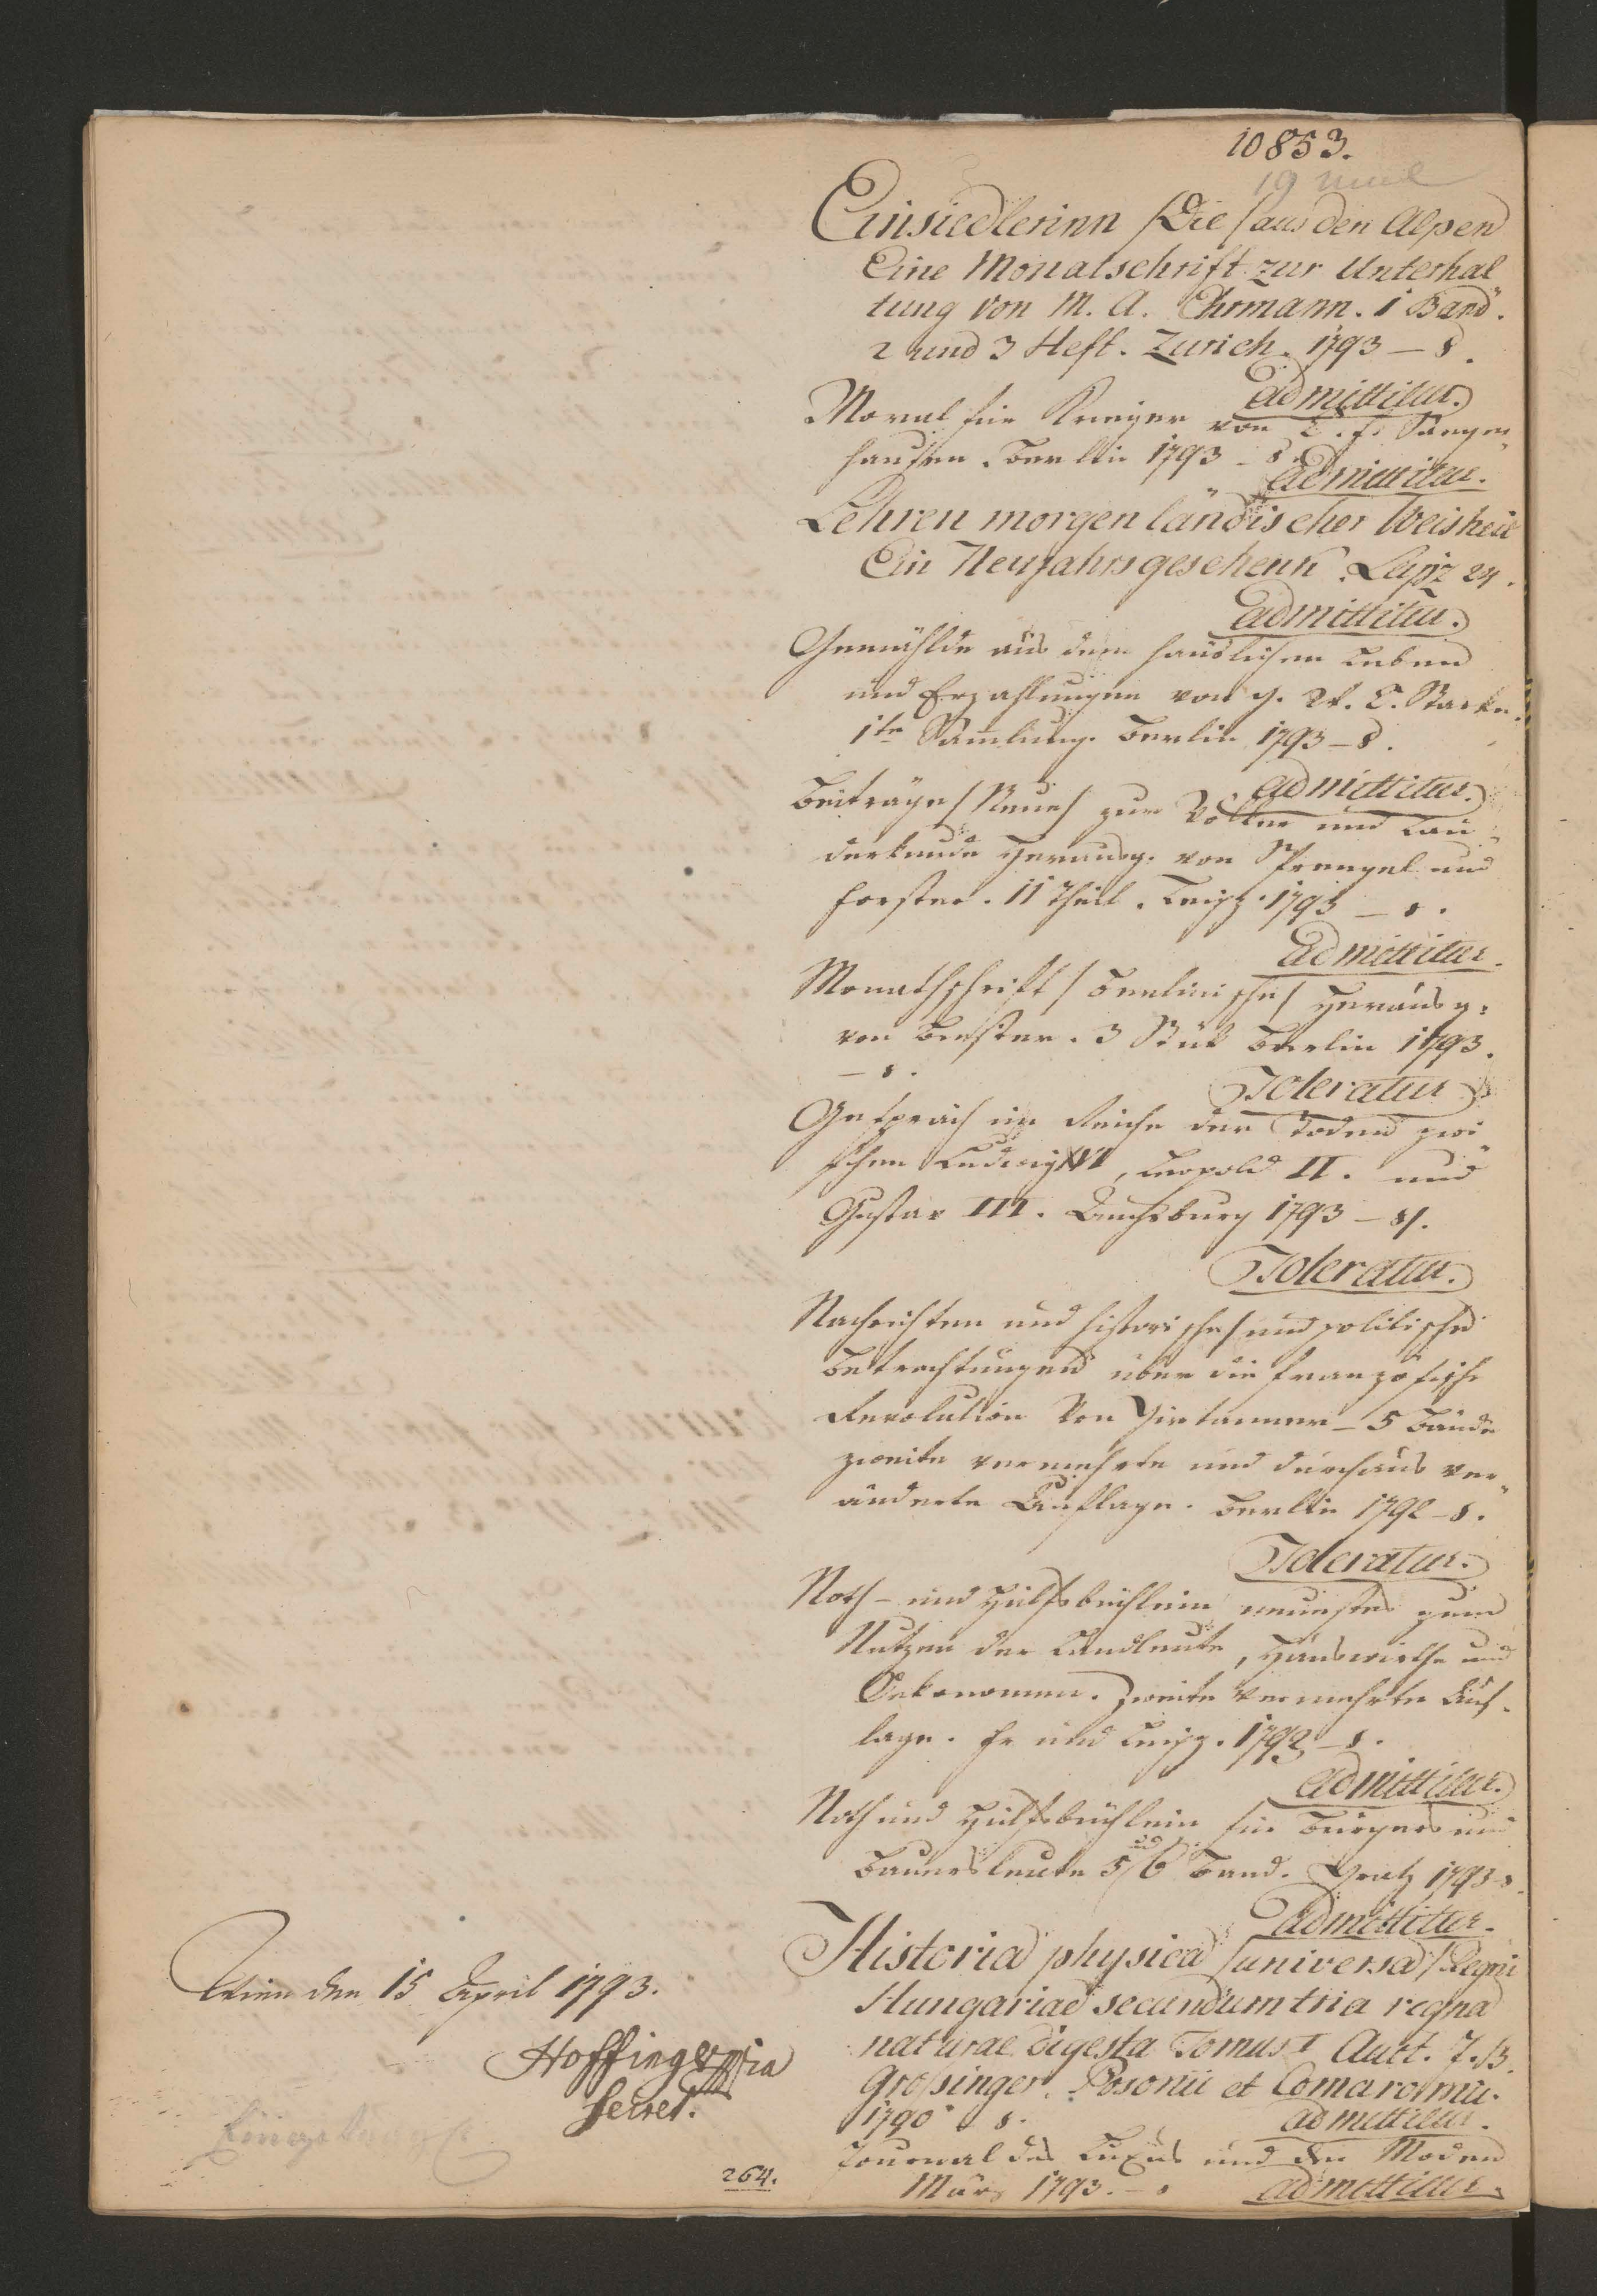 10853.
Einsiedlerinn /Die/ aus den Alpen
Eine Monatschrift zur Unterhal
tung von M. A. Ehrmann. 1 Band.
2 und 3 Heft. Zürich. 1793 – 8.
admittitur.
Moral für Krieger von C. F. Sangen
hausen. Berlin 1793 – 8.
admittitur.
Lehren morgenländischer Weisheit
Ein Neujahrsgeschenk. Leipz 24.
admittitur.
Gemählde aus dem häuslichen Leben
und Erzahlungen von G. W. C. Starke.
1te Samlung. Berlin 1793 – 8.
admittitur.
Beiträge /Neue/ zur Völker und Län
derkunde Herausg. von Sprengel und
Forster. 11 Theil. Leipz. 1793 – 8.
admittitur.
Monathschrift /Berlinische/ Herausg.
von Biester. 3 Stük Berlin 1793.
– 8.
Toleratur
Gespräch im Reiche der Toden zwi
schen Ludwig XVI, Leopold II. und
Gustav III. Auchsburg 1793 – 8.
Toleratur.
Nachrichten und historische/ und politische
Betrachtungen über die französische
Revolution von Girtanner – 5 Bände
zweite vermehrte und durchaus ver
änderte Auflage. Berlin 1792 – 8.
Toleratur.
Noth- und Hülfsbüchlein neuestes zum
Nutzen der Landleute, Hauswirthe und
Oekonomen. Zweite vermehrte Auf
lage. Fr und Leipz. 1792 – 8.
admittitur.
Noth und Hülfsbüchlein für Bürgers und
Bauersleute 5 und 6 Band. Gratz 1793 – 8.
admittitur.
Historia physica /universa/ Regni
Hungariae secundum tria regna
naturae digesta Tomus I Auct. J. B.
Grossinger. Posonii et Comaromii.
1790 8. admittitur.
Journal des Luxus und der Moden
März 1793. – 8 admittitur.
Wien den 15 April 1793.
Hoffinger mpria
Secret.
264.